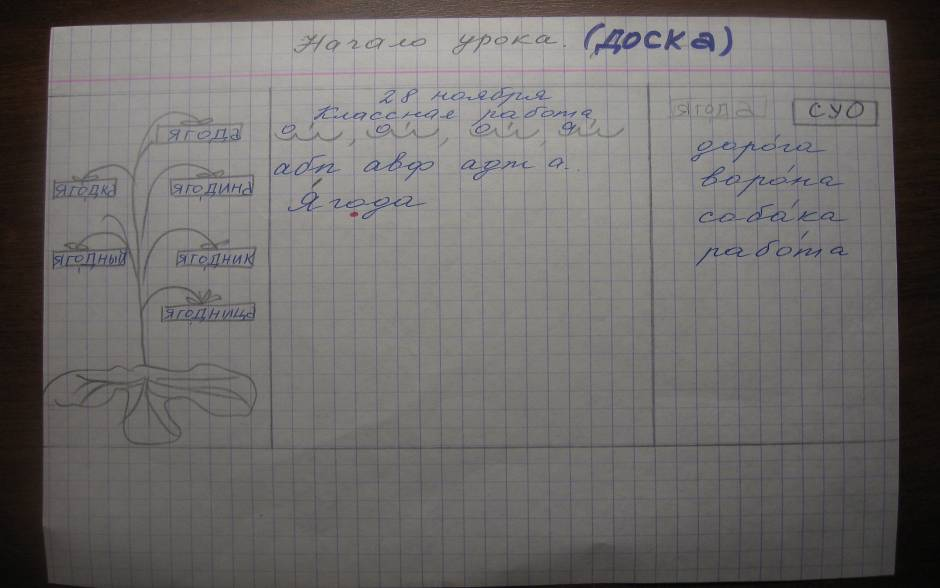 Начало урока. (ДОСКА)
ягода
ягодка
ягодина
ягодный
ягодник
ягодница
28 ноября
Классная работа
абп авф адт а..
Я́года
ягода
СУО
доро́га
воро́на
соба́ка
рабо́та